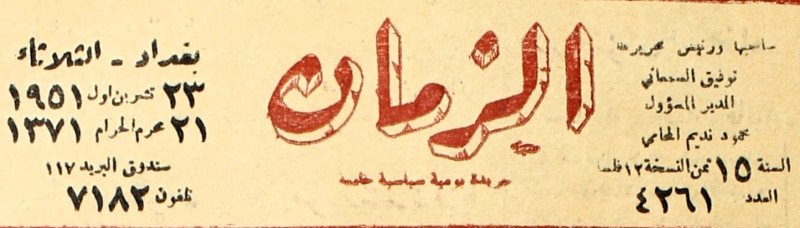 صاحبها ورئيس تحريرها
توفيق السمعاني
المدير المسؤول
محمود نديم المحامي
السنة ١٥ ثمن النسخة ١٢ فلسا
العدد ٤٢٦١
الزمان
جريدة يومية سياسية عامة
بغداد - الثلاثاء
٢٣ تشرين اول ١٩٥١
٢١ محرم الحرام ١٣٧١
صندوق البريد ١١٧
تلفون ٧١٨٢